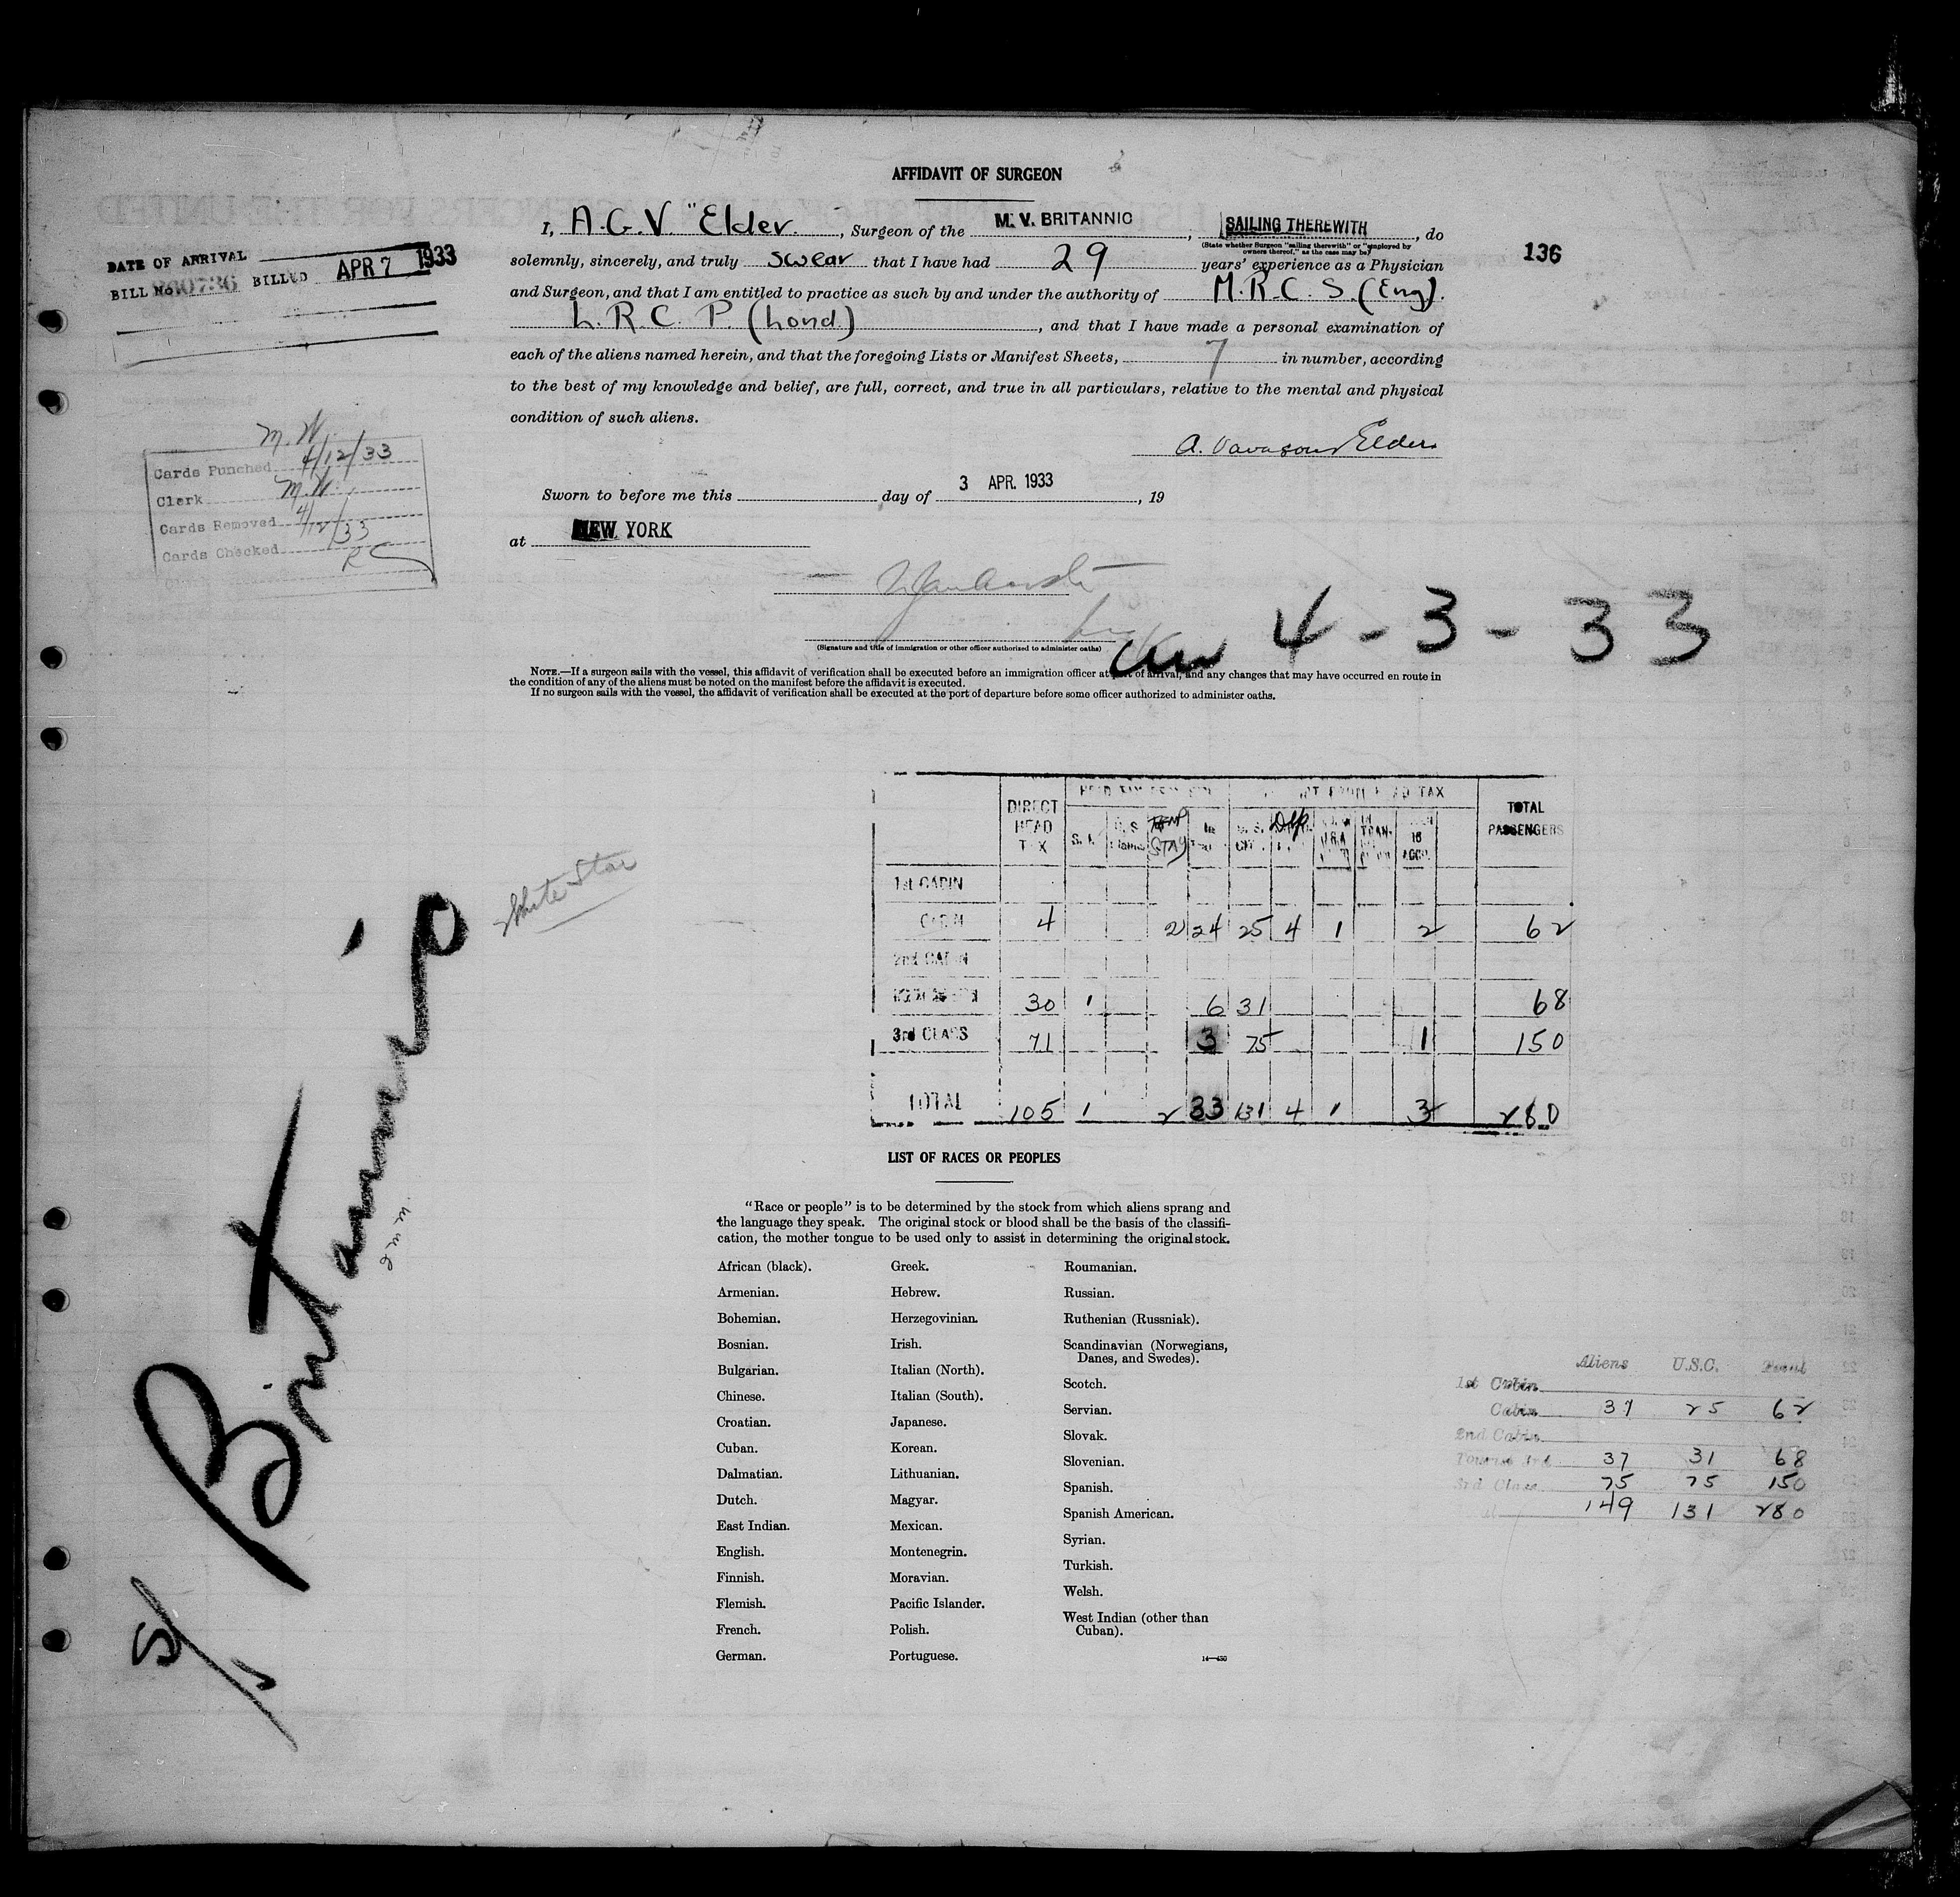 AFFIDAVIT OF SURGEON
I, A.G.V. Elder, Surgeon of the M. V. BRITANNIC, SAILING THEREWITH, do
(State whether Surgeon "sailing therewith" or "employed by owners thereof," as the case may be)
136
solemnly, sincerely, and truly swear that I have had 29 years' experience as a Physician
and Surgeon, and that I am entitled to practice as such by and under the authority of M.R.C.S. (Eng).
L.R.C.P. (Lond), and that I have made a personal examination of
each of the aliens named herein, and that the foregoing Lists or Manifest Sheets, 7 in number, according
to the best of my knowledge and belief, are full, correct, and true in all particulars, relative to the mental and physical
condition of such aliens.
A. Vavasour Elder
Sworn to before me this day of 3 APR. 1933, 19
at NEW YORK
(Signature and title of immigration or other officer authorized to administer oaths)
4-3-33
NOTE.—If a surgeon sails with the vessel, this affidavit of verification shall be executed before an immigration officer at port of arrival, and any changes that may have occurred en route in
the condition of any of the aliens must be noted on the manifest before the affidavit is executed.
If no surgeon sails with the vessel, the affidavit of verification shall be executed at the port of departure before some officer authorized to administer oaths.
DATE OF ARRIVAL
BILL No. BILLED APR 7 1933
M.W.
Cards Punched 4/12/33
Clerk M.W.
Cards Removed 4/12/33
Cards Checked
White Star
S/S Britannic
DIRECT HEAD TAX
TEMP STAY
TOTAL PASSENGERS
1st CABIN
CABIN 4 2 24 25 4 1 2 62
2nd CABIN
30 1 6 31 68
3rd CLASS 71 3 75 1 150
TOTAL 105 1 2 33 131 4 1 3 280
LIST OF RACES OR PEOPLES
"Race or people" is to be determined by the stock from which aliens sprang and
the language they speak. The original stock or blood shall be the basis of the classifi-
cation, the mother tongue to be used only to assist in determining the original stock.
African (black).
Armenian.
Bohemian.
Bosnian.
Bulgarian.
Chinese.
Croatian.
Cuban.
Dalmatian.
Dutch.
East Indian.
English.
Finnish.
Flemish.
French.
German.
Greek.
Hebrew.
Herzegovinian.
Irish.
Italian (North).
Italian (South).
Japanese.
Korean.
Lithuanian.
Magyar.
Mexican.
Montenegrin.
Moravian.
Pacific Islander.
Polish.
Portuguese.
Roumanian.
Russian.
Ruthenian (Russniak).
Scandinavian (Norwegians,
Danes, and Swedes).
Scotch.
Servian.
Slovak.
Slovenian.
Spanish.
Spanish American.
Syrian.
Turkish.
Welsh.
West Indian (other than
Cuban).
14—430
Aliens U.S.C. Total
1st Cabin
Cabin 37 25 62
2nd Cabin
Tourist 3rd 37 31 68
3rd Class 75 75 150
149 131 280